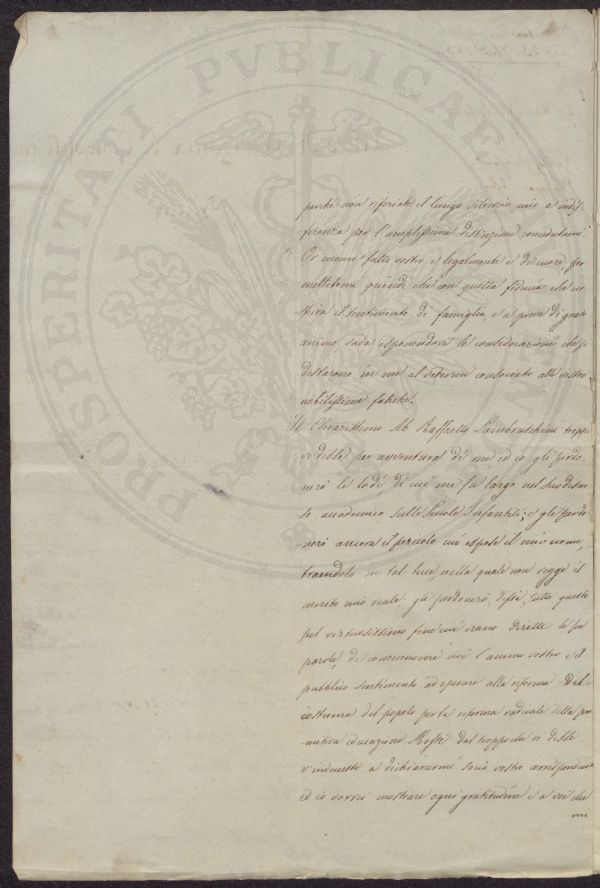 PROSPERITATI PVBLICAE
perchè non riferiate il lungo silenzio mio a indif-
ferenza per l'amplissima distinzione concedutami.
Or eccomi fatto vostro, e legalmente e di cuore; per
mettetemi quindi che con quella fiducia che in
spira il sentimento di famiglia, e a prova di grato
animo, vada esponendovi le considerazioni che si
destarono in me al vedermi consociato alle vostre
nobilissime fatiche.
Il Chiarissimo Ab Raffaello Lambruschini troppo
vi disse per avventura di me, ed io gli perdo-
nerò le lodi, di cui mi fu largo nel suo discor-
so accademico sulle Scuole Infantili; e gli perdo-
nerò ancora il pericolo cui espose il mio nome,
traendolo in tal luce nella quale non regge il
merito mio reale; gli perdonerò, dissi, tutto questo
pel virtuosissimo fine cui erano dirette le sue
parole, di commuovere cioè l'animo vostro e il
pubblico sentimento ad operare alla riforma del
costume del popolo per la riforma radicale della pri
mitiva educazione. Mossi dal troppo che vi disse
v'induceste a dichiararmi socio vostro corrispondente
ed io vorrei mostrare ogni gratitudine e a voi che
mi